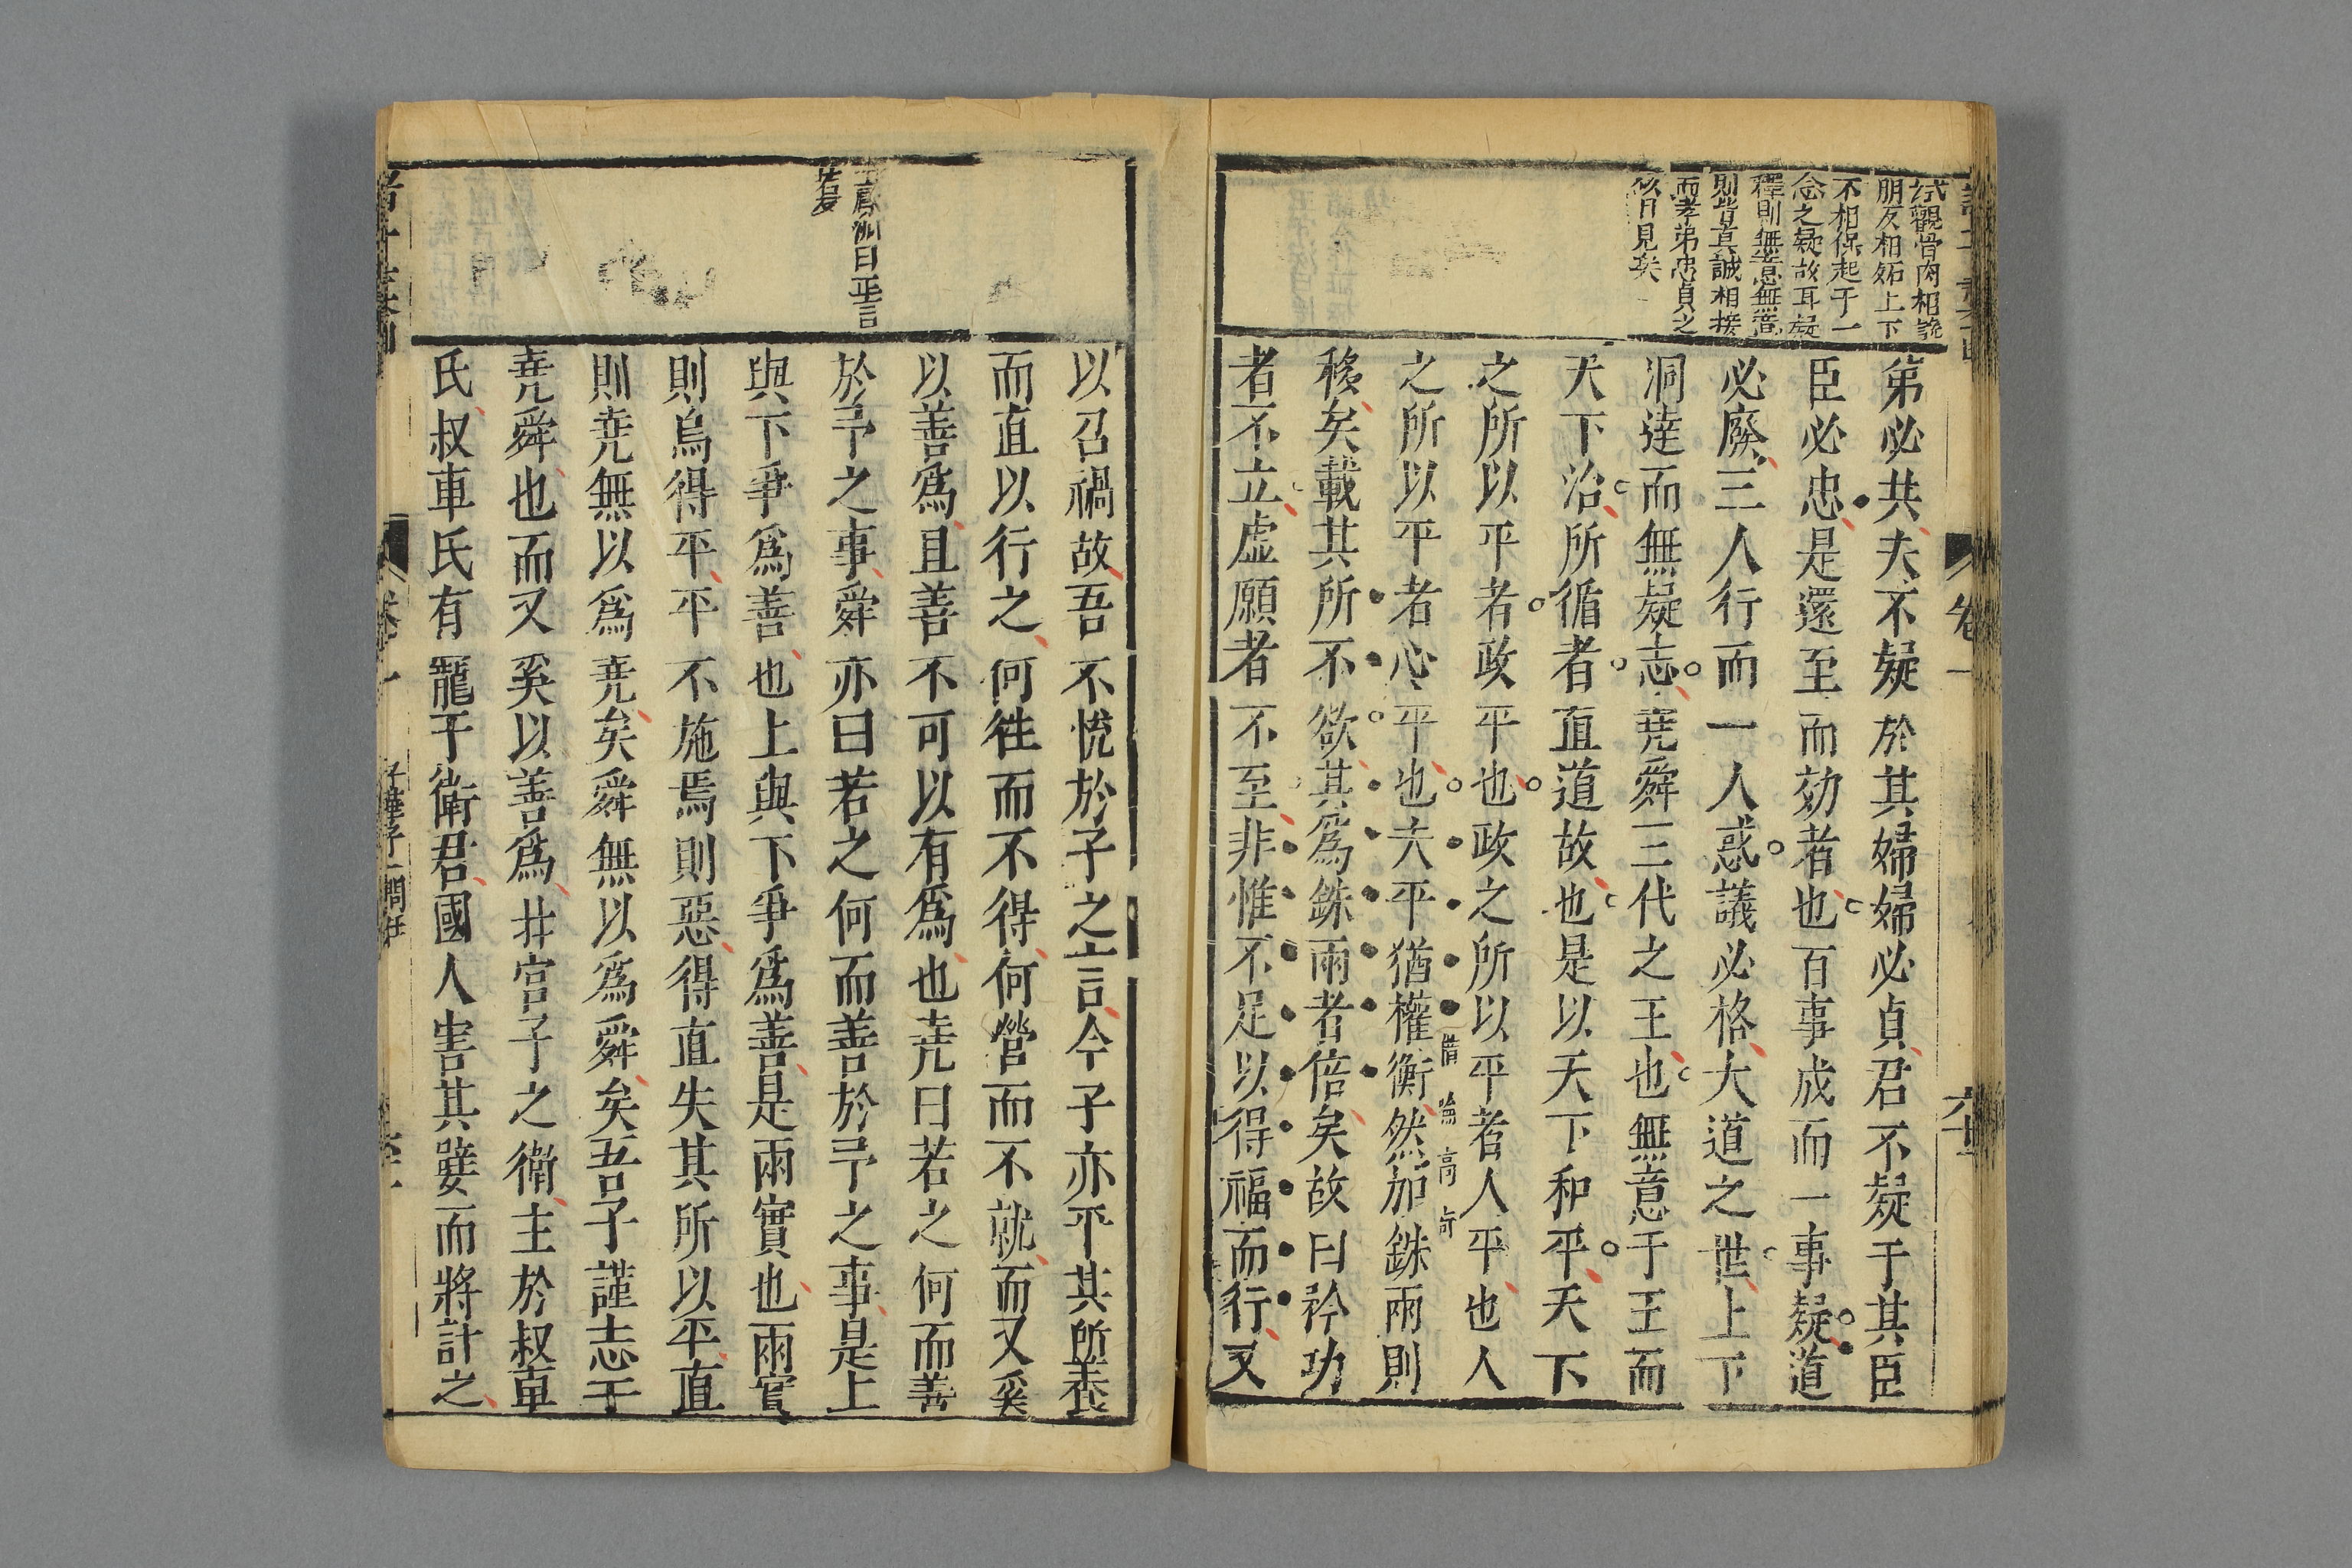 試觀骨肉相詭
朋友相妬上下
不相保起于一
念之疑故耳疑
釋則無惡無詭
則皆眞誠相接
而孝弟忠貞之
俗日見矣
弟必共夫不疑於其婦婦必貞君不疑于其臣
臣必忠是還至而効者也百事成而一事疑道
必廢三人行而一人惑議必格大道之世上下
洞達而無疑志堯舜三代之王也無意于王而
天下治所循者直道故也是以天下和平天下
之所以平者政平也政之所以平者人平也人
之所以平者心平也夫平猶權衡然加銖兩則
借喻高奇
移矣載其所不欲其爲銖兩者倍矣故曰矜功
者不立虛願者不至非惟不足以得福而行又
卷一
以召禍故吾不悅於子之言今子亦平其所養
而直以行之何徃而不得何營而不就而又奚
以善爲且善不可以有爲也堯曰若之何而善
於予之事舜亦曰若之何而善於予之事是上
與下爭爲善也上與下爭爲善是兩實也兩實
則烏得平平不施焉則惡得直失其所以平直
則堯無以爲堯矣舜無以爲舜矣吾子謹志于
堯舜也而又奚以善爲北宮子之衛主於叔車
氏叔車氏有寵于衛君國人害其嬖而將計之
鳳洲曰平言
若友
卷一
子華子